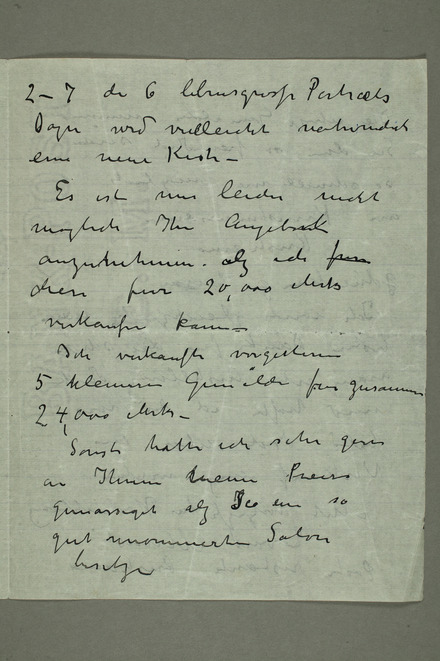 2–7 de 6 lebensgrosse Portraits
Dazu wird vielleicht notwendich
eine neue Kiste –
Es ist mir leider nicht
möglich Ihr Angebot
anzunehmen. alz ich
diese fuer 20,000 Mks
verkaufen kann –
Ich verkaufte vorgestern
5 kleinere Gemälde fur zusammen
24,000 Mks –
Sonst hatte ich sehr gern
an Ihnen meine Preise
gemassiget alz Sie ein so
gut renommierten Salon
besitze